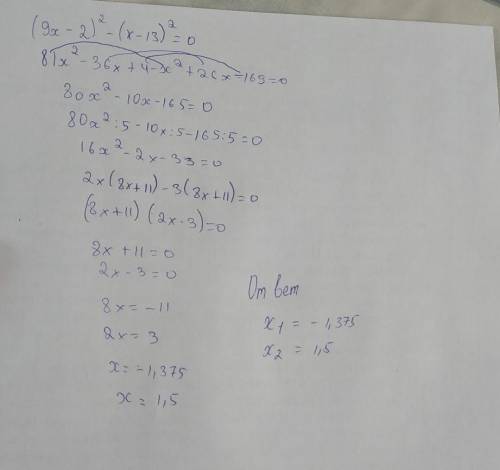 (9x-2)²-(x-13)²=0
81x²-36x+4-x²+26x-169=0
80x²-10x-165=0
80x²:5-10x:5-165:5=0
16x²-2x-33=0
2x(8x+11)-3(8x+11)=0
(8x+11)(2x-3)=0
8x+11=0
2x-3=0
8x=-11
2x=3
x=-1,375
x=1,5
Ответ
x₁=-1,375
x₂=1,5